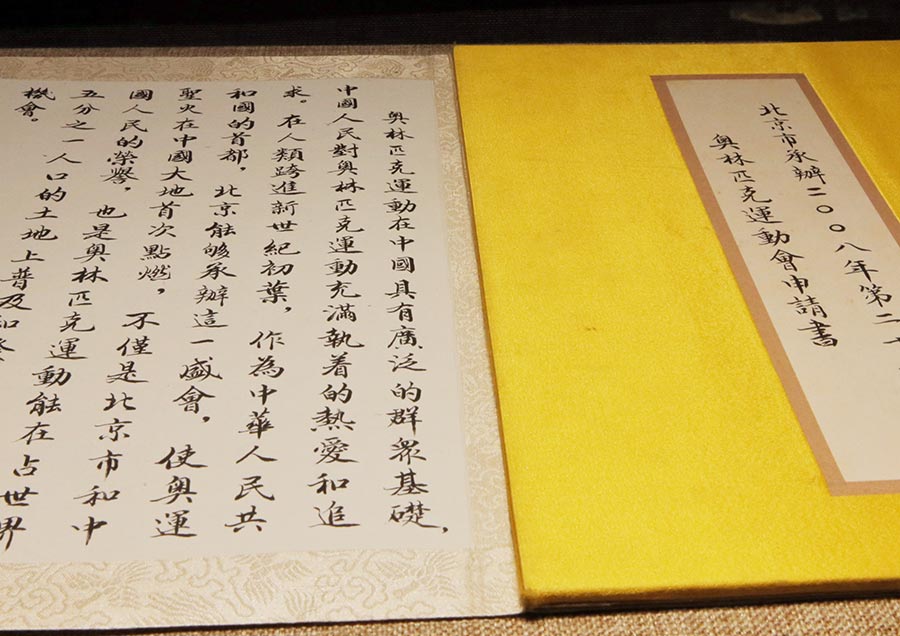 北京市承辦二〇〇八年第二十
奧林匹克運動會申請書
奧林匹克運動在中國具有廣泛的群眾基礎，
中國人民對奧林匹克運動充滿執着的熱愛和追
求。在人類跨進新世紀初葉，作為中華人民共
和國的首都，北京能够承辦這一盛會，使奧運
聖火在中國大地首次點燃，不僅是北京市和中
國人民的榮譽，也是奧林匹克運動能在占世界
五分之一人口的土地上普及和
機會。